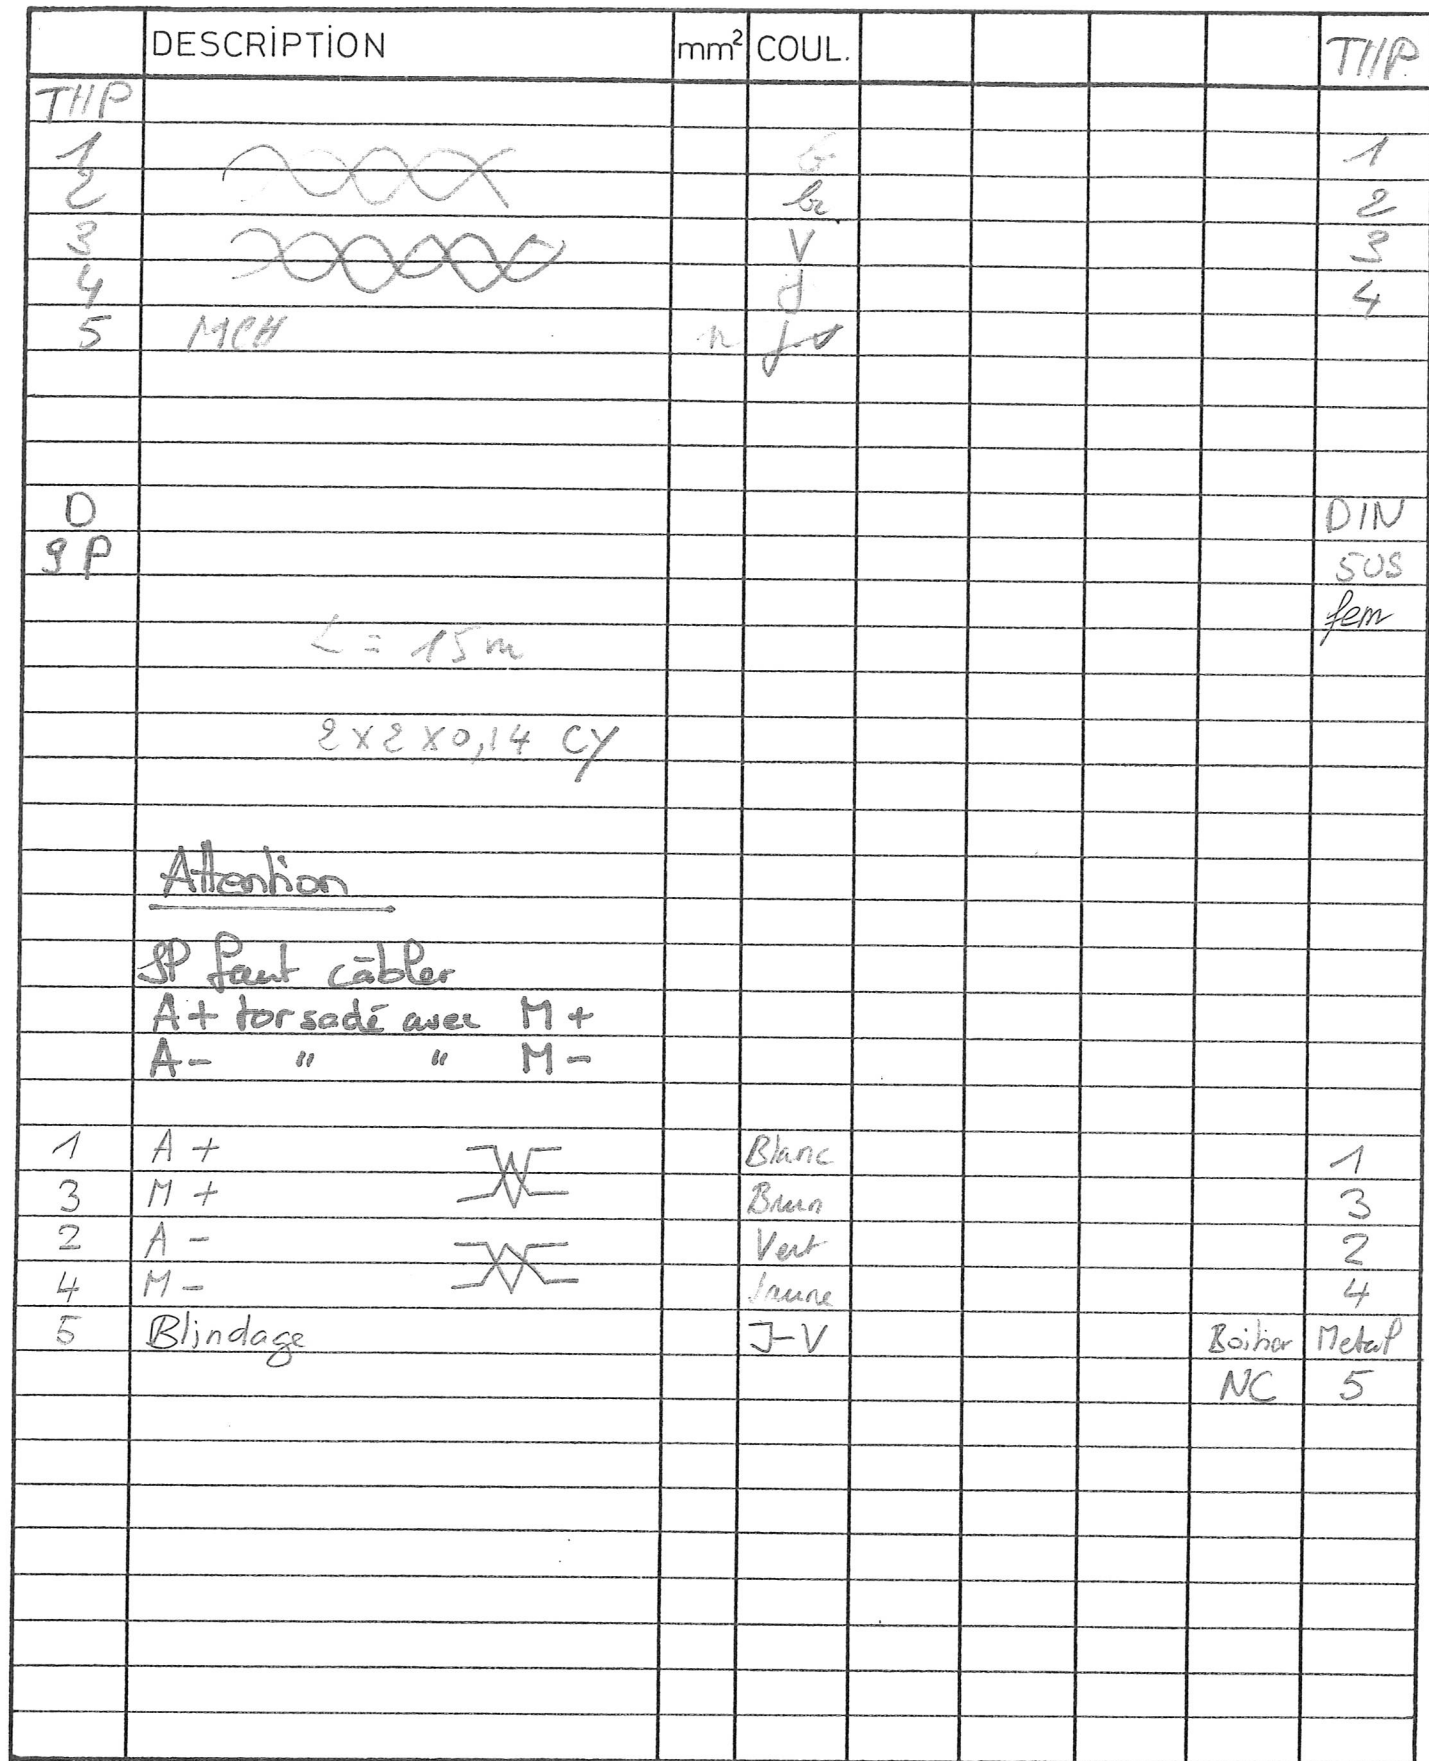 DESCRIPTION mm² COUL. THP
THP
1 b 1
2 br 2
3 V 3
4 J 4
5 MCH
D DIN
9P 5US
fem
L = 15 m
2x2x0,14 CY
Attention
il faut câbler
A+ torsadé avec M+
A- " " M-
1 A+ Blanc 1
3 M+ Brun 3
2 A- Vert 2
4 M- Jaune 4
5 Blindage J-V Boitier Metal
NC 5